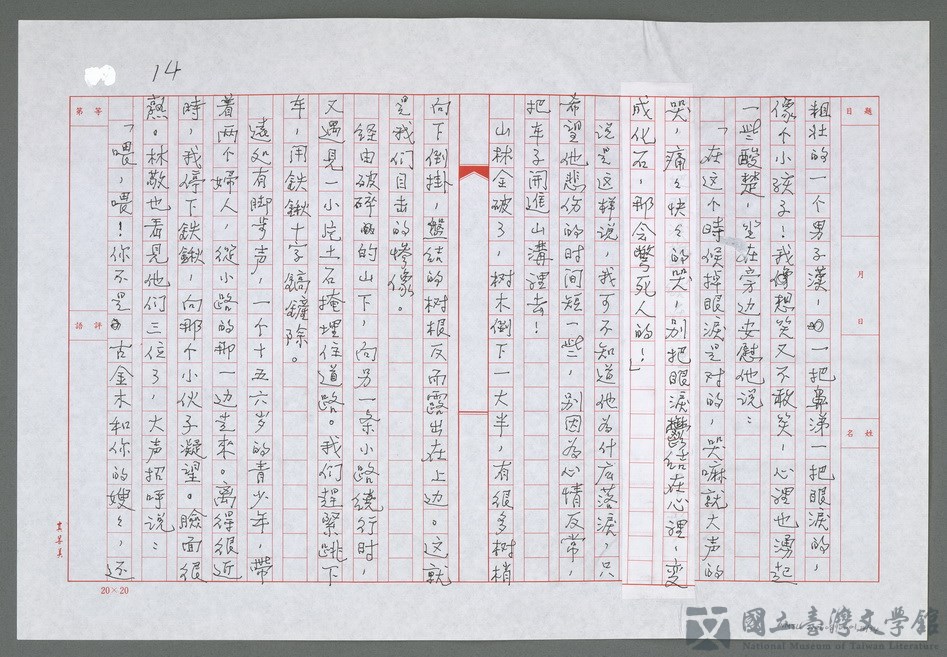 14
題目
月 日
姓名
等第
評語
粗壯的一个男子漢，一把鼻涕一把眼淚的，
像个小孩子！我像想笑又不敢笑，心裡也湧起
一些酸楚，坐在旁边安慰他說：
「在这个時候掉眼淚是对的，哭嘛就大声的
哭，痛々快々的哭，別把眼淚鬱結在心裡，变
成化石，那会彆死人的！」
說是这样說，我可不知道他為什広落淚，只
希望他悲伤的时间短一些，別因為心情反常，
把车子開進山溝裡去！
山林全破了，树木倒下一大半，有很多树梢
向下倒掛，盤結的树根反而露出在上边。这就
是我们目击的惨像。
経由破碎的山下，向另一条小路绕行时，
又遇見一小坨土石掩埋住道路。我们趕緊跳下
车，用鉄鍬十字鎬鏟除。
遠处有脚步声，一个十五六岁的青少年，帶
着两个婦人，從小路的那一边走來。离得很近
時，我停下鉄鍬，向那个小伙子凝望。臉面很
熟。林敬也看見他们三位了，大声招呼说：
「喂，喂！你不是古金木和你的嫂々，还
20×20
國立臺灣文學館
National Museum of Taiwan Literature